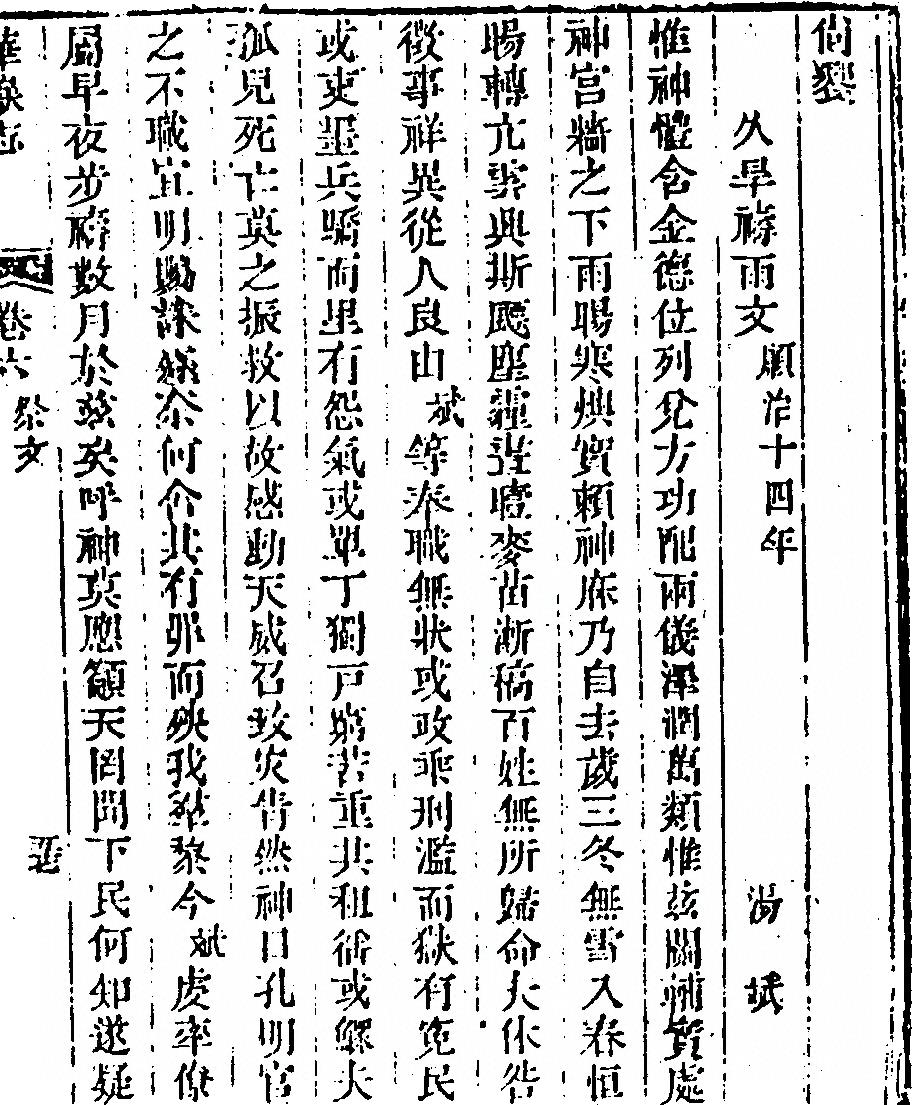 尙饗
久旱禱雨文 順治十四年 湯斌
惟神體含金德位列兌方功配兩儀澤潤萬類惟兹關輔實處
神宮牆之下雨暘寒燠實賴神庥乃自去歲三冬無雪入春恒
暘轉亢雲興斯颺塵霾晝曀麥苗漸稿百姓無所歸命大休咎
徵事祥異從人良由斌等奉職無狀或政乖刑濫而獄有寃民
或吏墨兵驕而里有怨氣或單丁獨戸窮苦重共租徭或鰥夫
孤兒死亡莫之振救以故感動天威召致災眚然神目孔明官
之不職宜明賜誅殛奈何令共有罪而殃我黎今斌虔率僚
屬早夜步禱數月於兹矣呼神莫應籲天罔聞下民何知遂疑
華嶽志 卷六 祭文